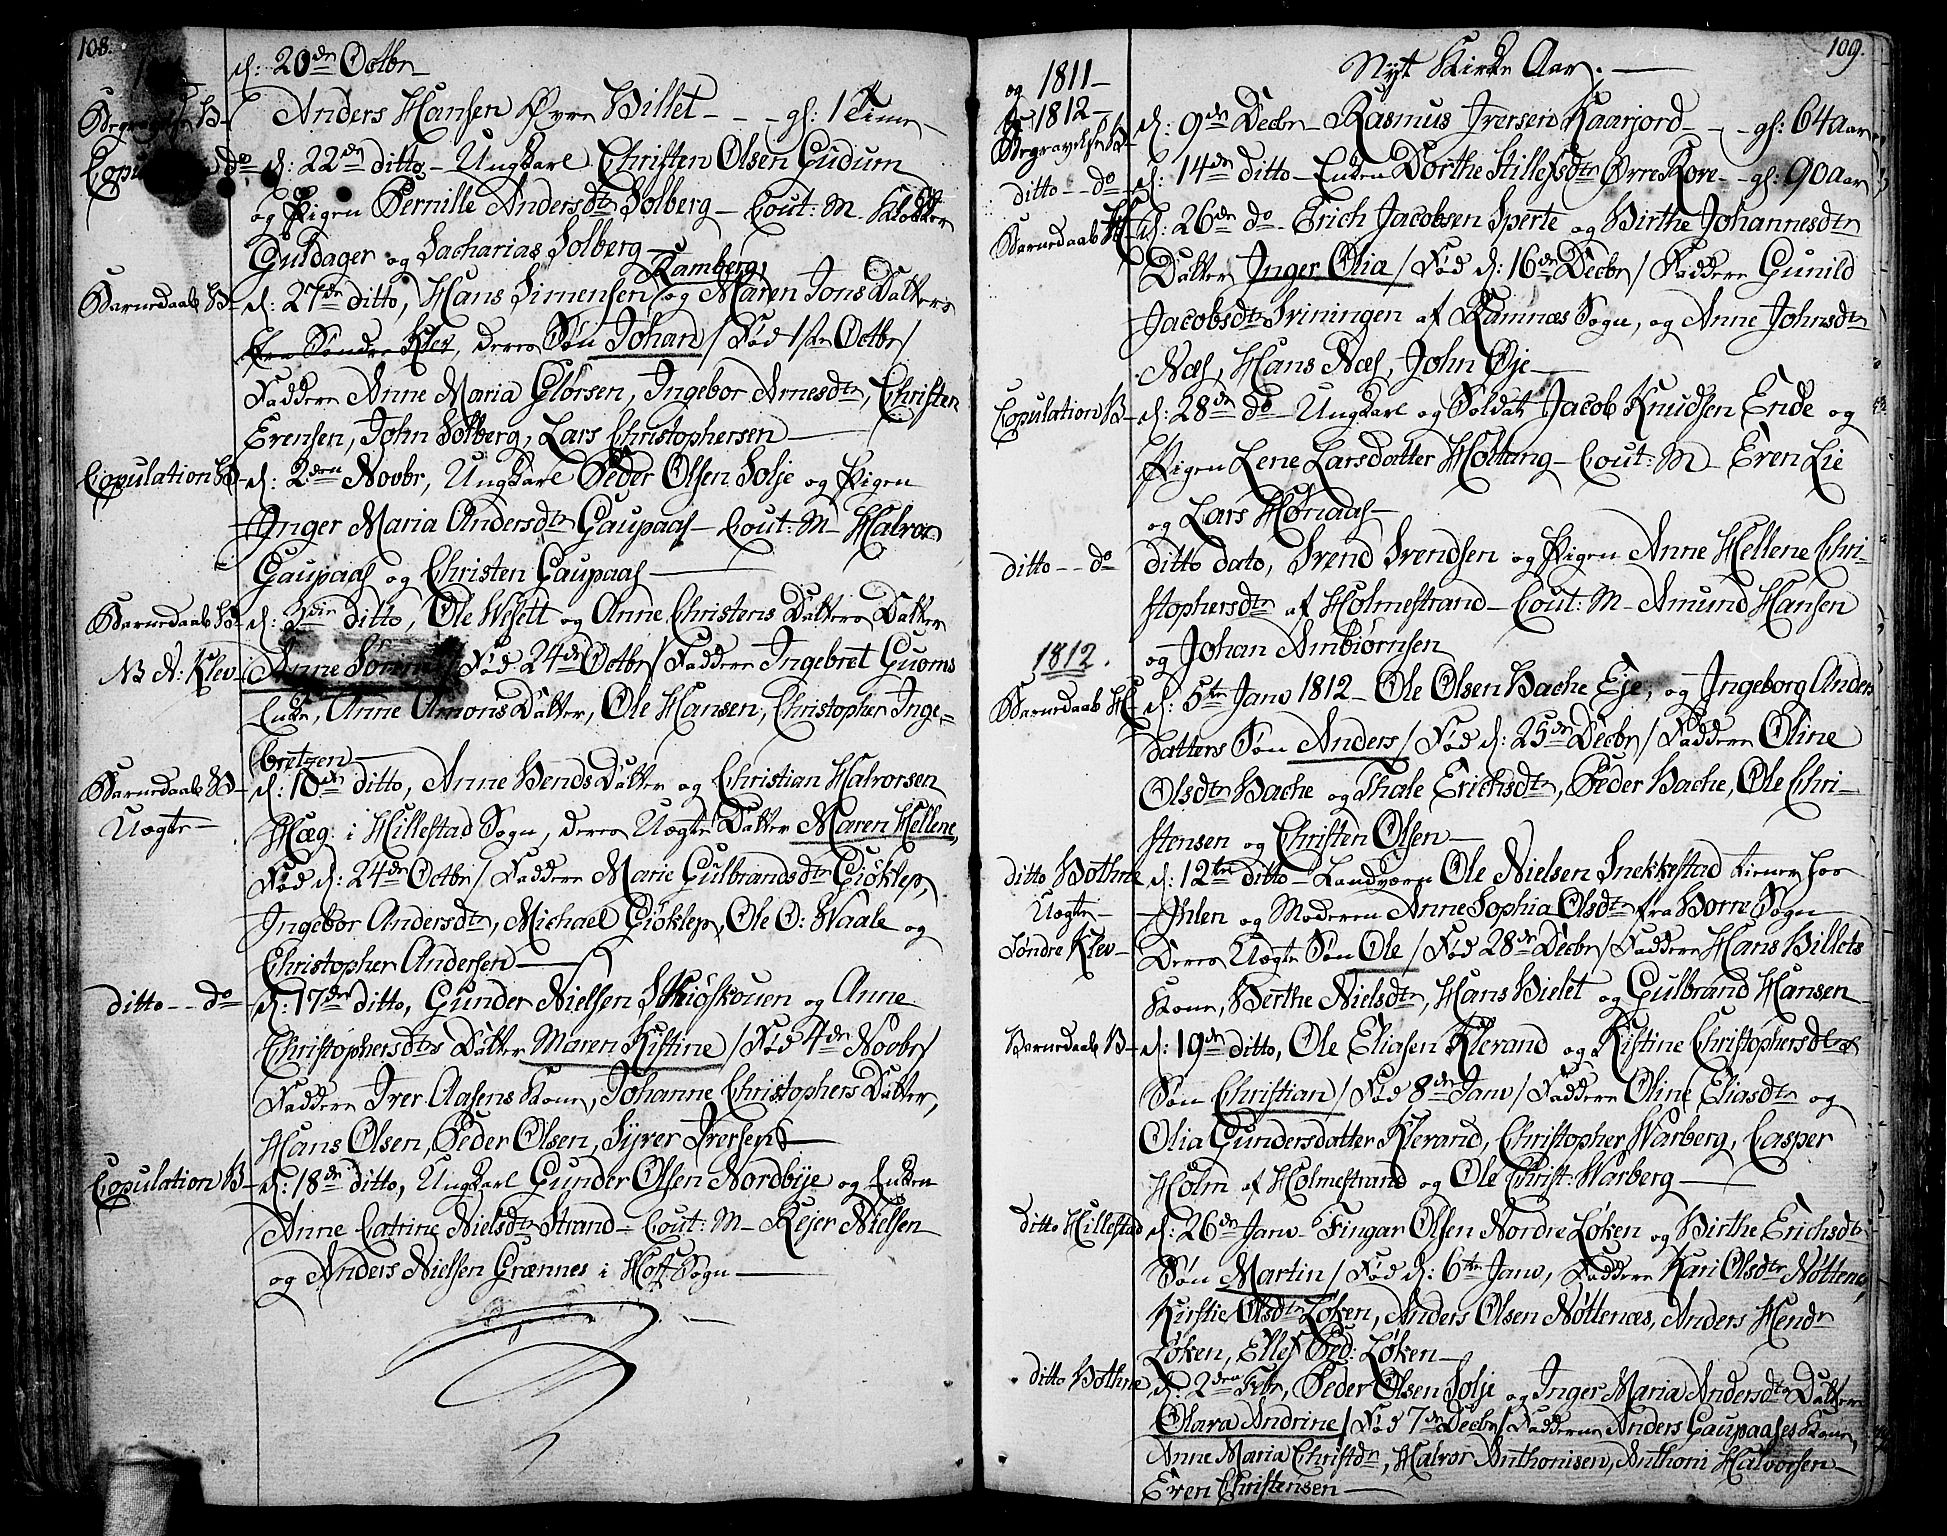 108.
d: 20de Octbr
Begravelse B- Anders Hansen Øvre Billet - - - gl: 1 Time
Copulation do d: 22de ditto - Ungkarl Christen Olsen Gudum
og Pigen Pernille Andersdtr Solberg - Cout: M - Klokker
Guldager og Sacharias Solberg
Ramberg,
Barnedaab B- d: 27de ditto, Hans Simensen og Maren Jons Datters
fra Søndre Klev, deres Søn Johan / Fød 1ste Octbr /
Faddere Anne Maria Glorsen, Ingebor Arnesdtr, Christen
Evensen, John Solberg, Lars Christophersen
Copulation B- d: 2den Novbr, Ungkarl Peder Olsen Solje og Pigen
Inger Maria Andersdtr Gaupaas - Cout: M - Halvor
Gaupaas og Christen Gaupaas
Barnedaab B- d: 3die ditto, Ole Weslett og Anne Christens Datters Datter
NB A: Klev Anne / Fød 24de Octbr / Faddere Ingebret Guoms
Enke, Anne Amons Datter, Ole Hansen, Christopher Inge-
bretzen
Barnedaab B- d: 10de ditto, Anne Bends Datter og Christian Halvorsen
Uægte - Hæg: i Hillestad Sogn, deres Uægte Datter Maren Hellene,
Fød d: 24de Octbr / Faddere Marie Gulbrandsdtr Giøklep,
Ingebor Andersdtr, Michael Giøklep, Ole O: Waale og
Christopher Andersen
ditto - - do d: 17de ditto, Gunder Nielsen Skiøskouen og Anne
Christophersdtrs Datter Maren Kistine / Fød 4de Novbr /
Faddere Iver Aasens Kone, Johanne Christophers Datter,
Hans Olsen, Peder Olsen, Syver Iversen
Copulation B- d: 18de ditto, Ungkarl Gunder Olsen Nordbye og Enken
Anne Catrine Nielsdtr Strand - Cout: M - Kejer Nielsen
og Anders Nielsen Grænnes i Hoff Sogn
109.
og 1811 - Nyt Kirke Aar.
1812 -
Begravelse B- d: 9de Decbr - Rasmus Iversen Kaarjord - - gl: 64 Aar
ditto - - do d: 14de ditto - Enken Dorthe Stillefsdtr Øvre Kove - - gl: 90 Aar
Barnedaab H- d: 26de do - Erich Jacobsen Sperte og Birthe Johannesdtr
Datter Inger Olia / Fød d: 16de Decbr / Faddere Gunild
Jacobsdtr Sviningen af Ramnæs Sogn, og Anne Johnsdtr
Næs, Hans Næs, John Øje
Copulation B- d: 28de do - Ungkarl og Soldat Jacob Knudsen Ende og
Pigen Lene Larsdatter Holtung - Cout: M - Even Lie
og Lars Horiaas
ditto - - do ditto dato, Svend Svendsen og Pigen Anne Hellene Chri-
stophersdtr af Holmestrand - Cout: M - Amund Hansen
og Johan Ambiørnsen
1812.
Barnedaab H- d: 5te Janv 1812 - Ole Olsen Bache Eje, og Ingeborg Anders
Datters Søn Anders / Fød d: 25de Decbr / Faddere Oline
Olsdtr Bache og Thale Erichsdtr, Peder Bache, Ole Chri-
stensen og Christen Olsen
ditto Bothne d: 12te ditto - Landværn Ole Nielsen Snekkestad tiener hos
Uægte - Ihlen og Moderen Anne Sophia Olsdtr fra Borre Sogn
Søndre Klev - Deres Uægte Søn Ole / Fød 28de Decbr / Faddere Hans Billets
Kone, Berthe Nielsdtr, Hans Bielet og Gulbrand Hansen
Barnedaab B- d: 19de ditto, Ole Eliasen Klevand og Kistine Christophersdtrs
Søn Christian / Fød 8de Janv / Faddere Oline Eliasdtr og
Olia Gundersdatter Klevand, Christopher Warberg, Casper
Holm af Holmestrand og Ole Christ: Warberg
ditto Hillestad d: 26de Janv - Fingar Olsen Nordre Løken og Birthe Erichsdtr
Søn Martin / Fød d: 6te Janv, Faddere Kari Olsdtr Nøttenæs,
Kirstie Olsdtr Løken, Anders Olsen Nøttenæs, Anders Hendr
Løken, Ellef Ped: Løken
ditto Bothne d: 2den Febr, Peder Olsen Solje og Inger Maria Andersdtrs Datter
Olara Andrine / Fød 7de Decbr / Faddere Anders Gaupaases Kone,
Anne Maria Christdtr, Halvor Anthonisen, Anthoni Halvorsen
Even Christensen